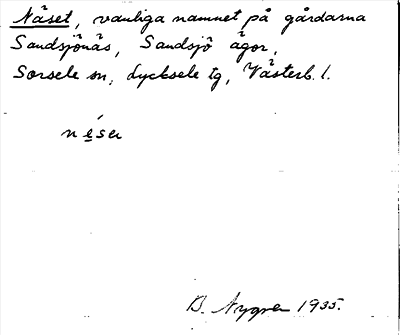 Näset, vanliga namnet på gårdarna
Sandsjönäs, Sandsjö ägor,
Sorsele sn, Lycksele tg, Västerb. l.
néseɩ
B. Nygren 1935.